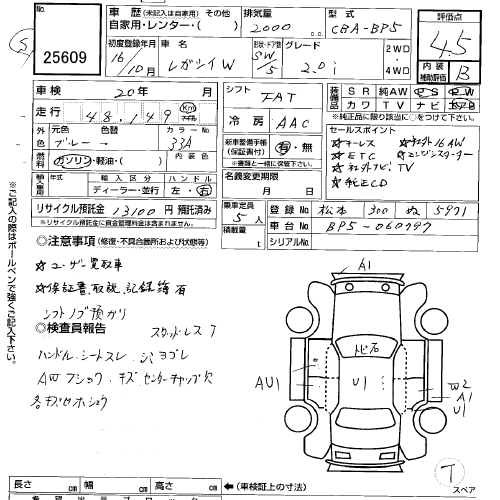 No. 25609
車歴 (未記入は自家用) その他
自家用・レンター・( )
排気量 2000
型式 CBA-BP5
評価点 4.5
内装補助評価 B
初度登録年月 16/10月
車名 レガシイW
形状・ドア数 SW/5
グレード 2.0i
2WD・4WD
車検 20年 月
シフト FAT
装備品 SR 純AW PS PW
カワ TV ナビ エアB
※純正品に限り該当に○をつけて下さい。
走行 48,149 Km マイル
冷房 AAC
セールスポイント
★キーレス ★社外16AW
★ETC ★エンジンスターター
★社外ナビ、TV
★純CD
外色 元色 色替 カラーNo
ブルー → 33A
燃料 ガソリン・軽油・( ) 内装色
新車整備手帳(保証書付) 有・無
※書類と一緒に保管して下さい。
輸入車 輸入区分 ハンドル
ディーラー・並行 左・右
名義変更期限 月 日
リサイクル預託金 13100円 預託済み
※リサイクル預託金に資金管理料金は含まれません。
乗車定員 5人
積載量 t
登録No 松本 300 ぬ 5971
車台No BP5-060797
シリアルNo
◎注意事項 (修復・不具合箇所および状態等)
★ユーザー買取車
★保証書、取説、記録簿有
シフトノブ預かり
◎検査員報告 スタッドレス7
ハンドル、シートスレ シミヨゴレ
キズ センターキャップ欠
※ご記入の際はボールペンで強くご記入下さい。
A1
飛石
AU1
U1
W2
A1
U1
T
スペア
長さ cm 幅 cm 高さ cm ←(車検証上の寸法)